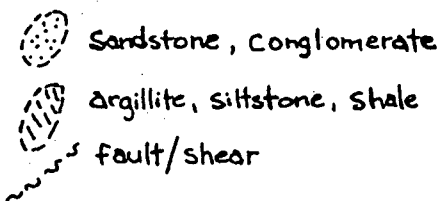 Sandstone, Conglomerate
argillite, siltstone, shale
fault/shear